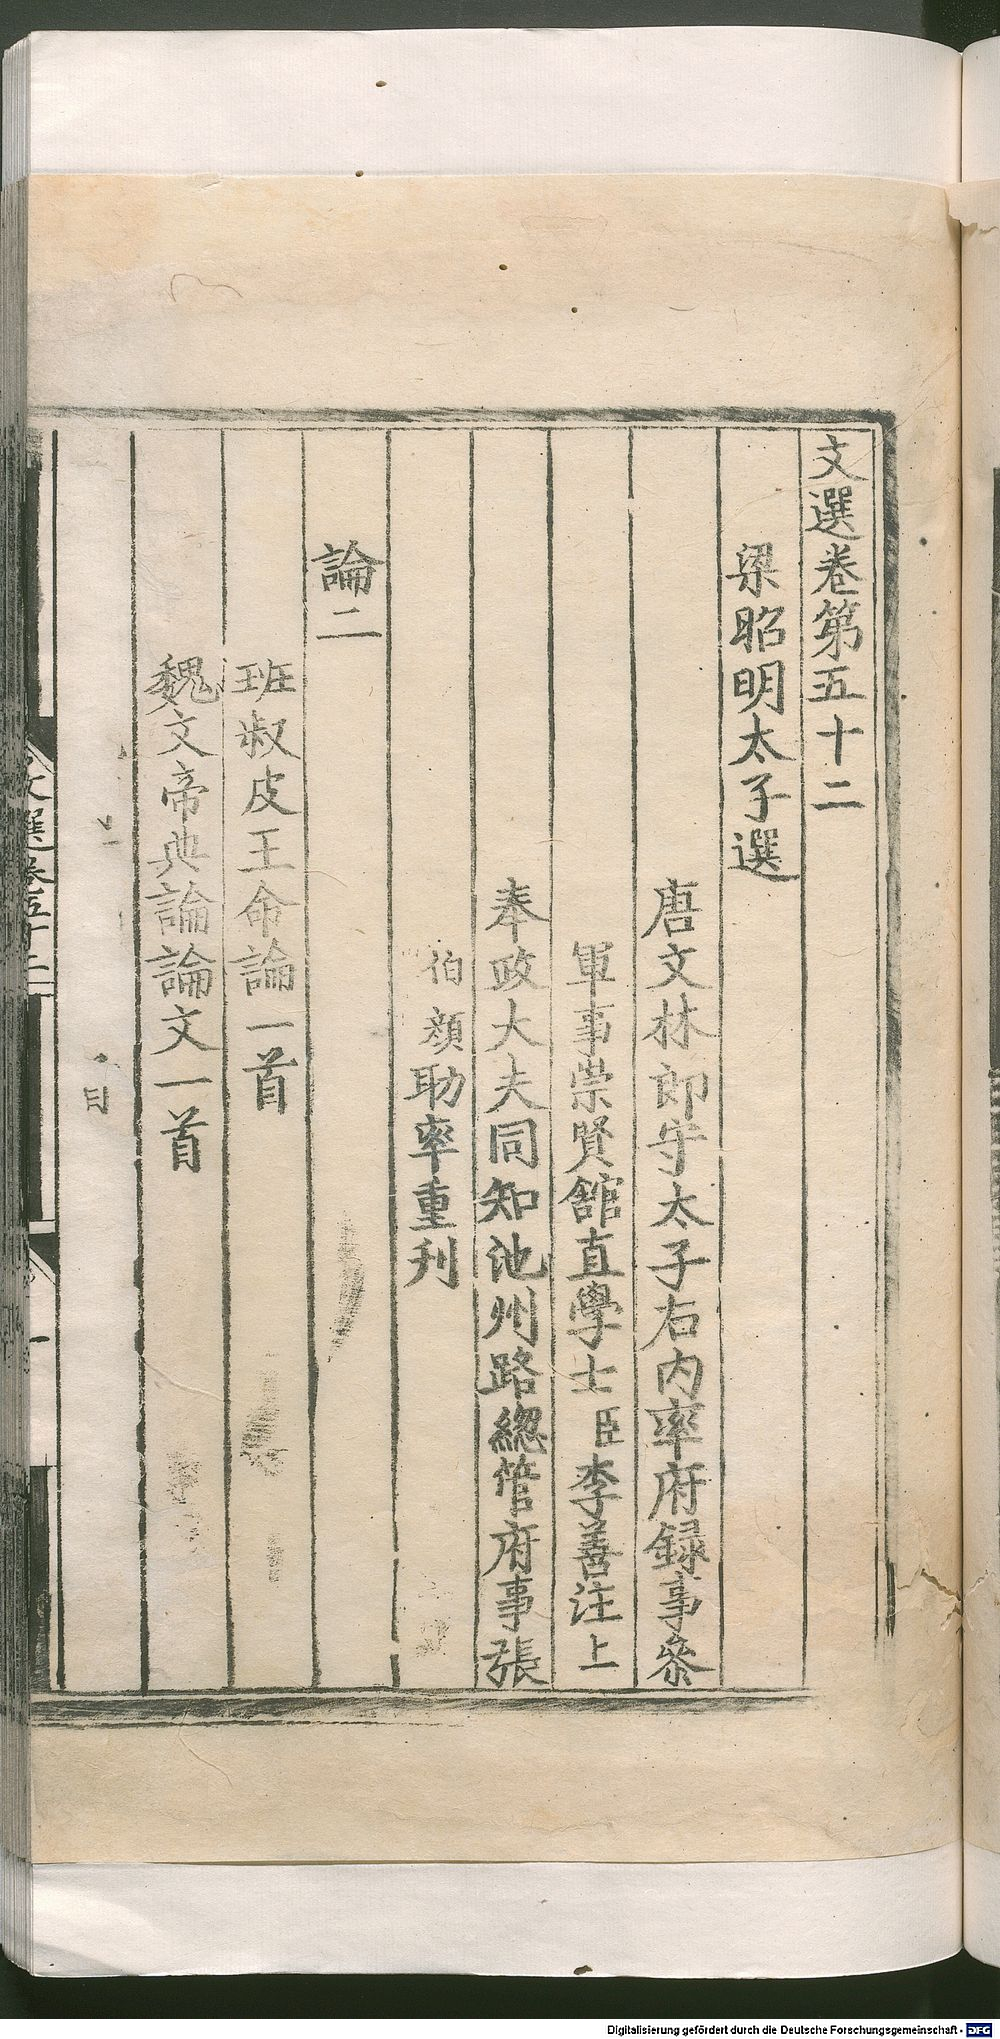 文選卷第五十二
梁昭明太子選
唐文林郎守太子右內率府録事叅
軍事崇賢館直學士臣李善注上
奉政大夫同知池州路緫管府事張
伯顔助率重刋
論二
班叔皮王命論一首
魏文帝典論論文一首
目
文選卷五十二
一
Digitalisierung gefördert durch die Deutsche Forschungsgemeinschaft - DFG